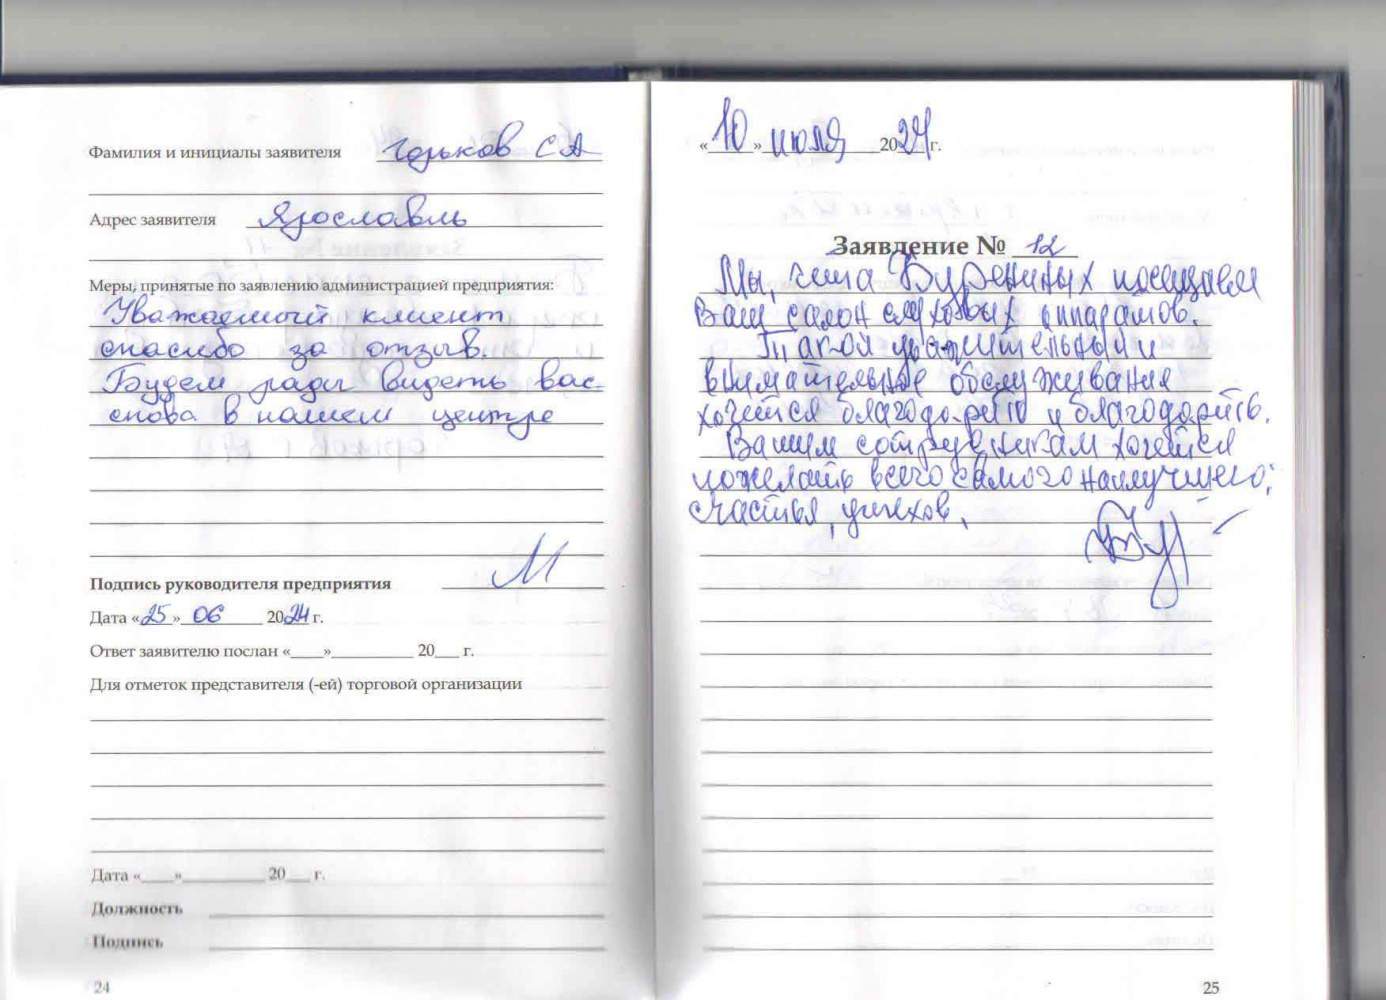 Фамилия и инициалы заявителя Горьков С А
Адрес заявителя Ярославль
Меры, принятые по заявлению администрацией предприятия:
Уважаемый клиент
спасибо за отзыв.
Будем рады видеть вас
снова в нашем центре
Подпись руководителя предприятия
Дата «25» 06 2024 г.
Ответ заявителю послан «___»__________ 20___ г.
Для отметок представителя (-ей) торговой организации
Дата «____»__________ 20___ г.
Должность
Подпись
24
«10» июля 2024 г.
Заявление № 12
Мы, чета Бурениных посещаем
Ваш салон слуховых аппаратов.
Такой уважительный и
внимательное обслуживания
хочется благодарить и благодарить.
Вашим сотрудникам хочется
пожелать всего самого наилучшего;
счастья, успехов,
25